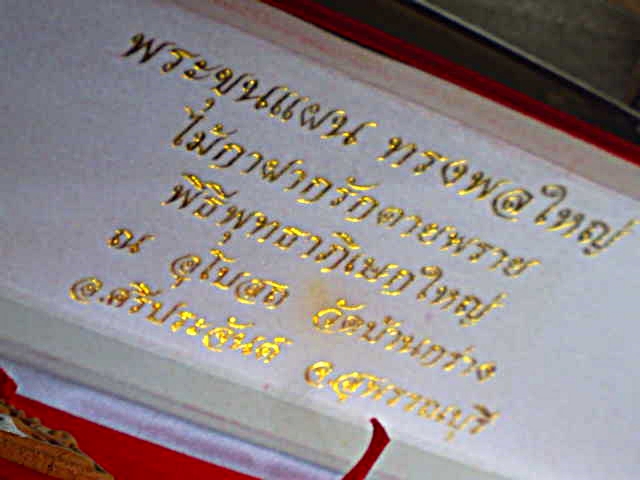 พระขุนแผน ทรงพลใหญ่
ไม้กาฝากรักตายพราย
พิธีพุทธาภิเษกใหญ่
ณ อุโบสถ วัดบ้านกร่าง
อ.ศรีประจันต์ จ.สุพรรณบุรี